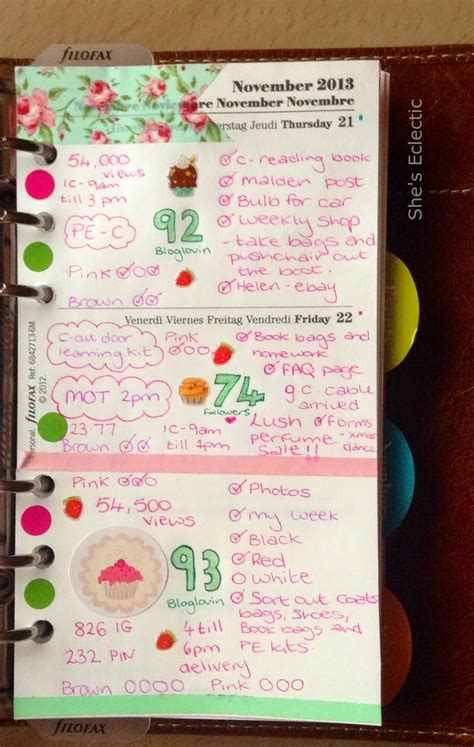 FILOFAX
November 2013
November Novembre
Jeudi Thursday 21
She's Eclectic
54,000
views
1c-9am
till 3pm
PE-C
92
Bloglovin
Pink
Brown
C-reading book
Malden post
Bulb for car
weekly shop
- take bags and
pushchair out
the boot.
Helen-ebay
Venerdì Viernes Freitag Vendredi Friday 22
C-out door
learning kit
Pink
Book bags and
homework
FAQ page
MOT 2pm
74
followers
g.c. cable
arrived
Lush
perfume
Sale!!
forms
-xmas
dance
23.77
1c-9am
Brown
till 1pm
Personal FILOFAX Ref: 6842713-6M.
© 2012.
Pink
54,500
views
93
Bloglovin
Photos
my week
Black
Red
White
Sort out coats
bags, shoes,
Book bags and
PE kits.
826 IG
232 PIN
4 till
6pm
delivery
Brown
Pink
FILOFAX